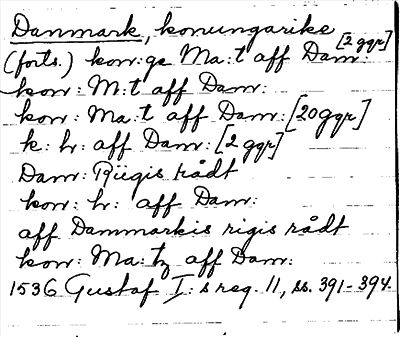 Danmark, konungarike
(forts.) kon:ge Ma:t aff Dam: [2 ggr]
kon: M:t aff Dam:
kon: Ma:t aff Dam: [20 ggr]
k: h: aff Dam: [2 ggr]
Dam: Riigis rådt
kon: h: aff Dam:
aff Dammarkis rigis rådt
kon: Ma:tz aff Dam:
1536 Gustaf I:s reg. 11, ss. 391-394